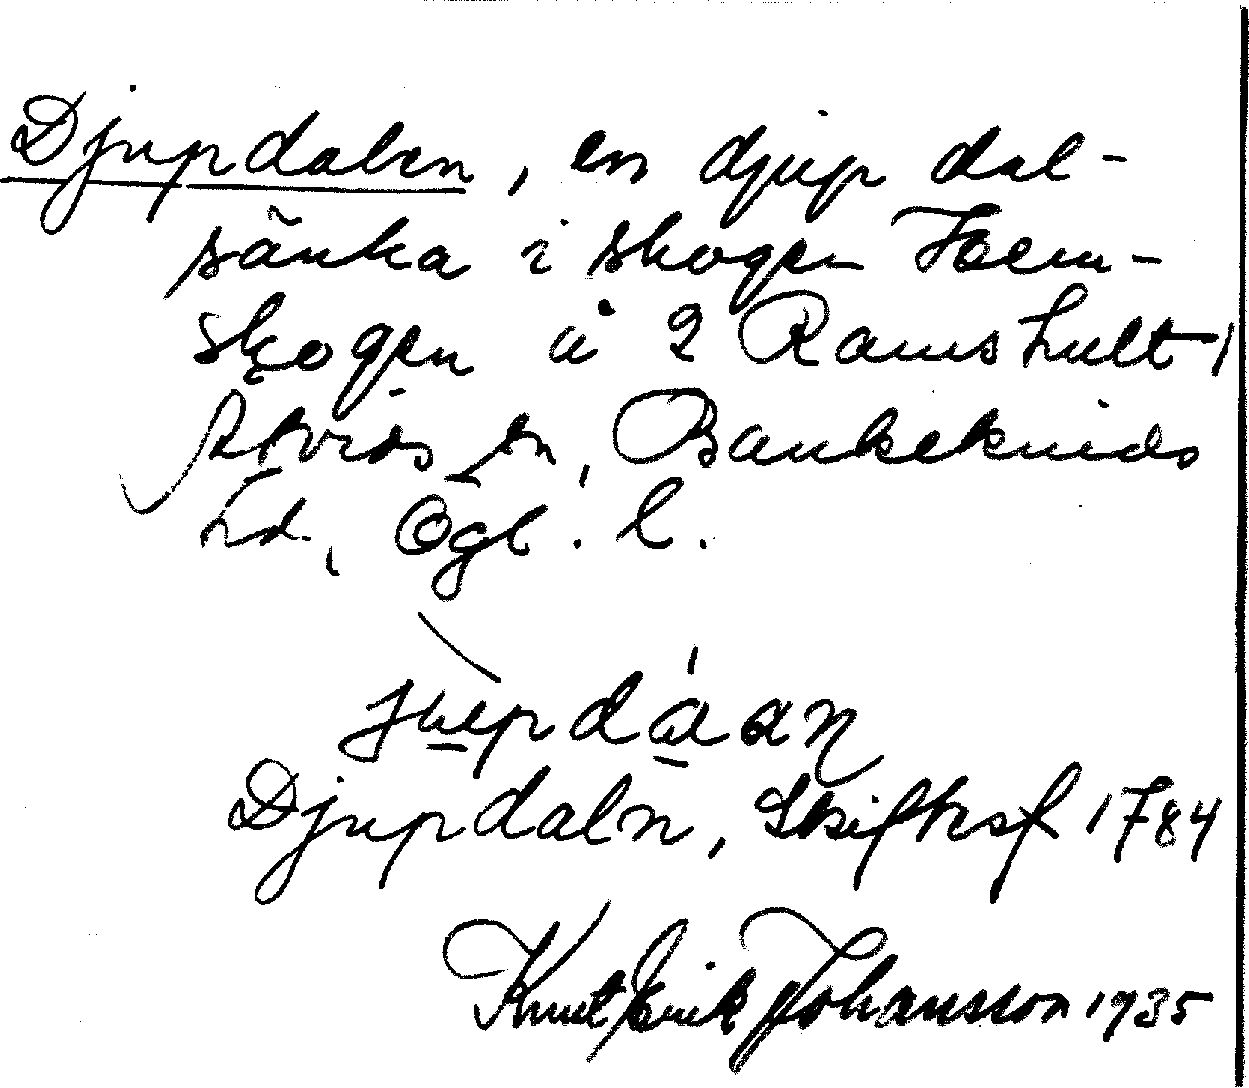 Djupdalen, en djup dal-
sänka i skogen Hem-
skogen å 2 Ramshult,
Åtvids sn, Bankekinds
hd., Ögl. l.
jupdáan
Djupdaln, Skiftesf 1784
Knut Erik Johansson 1935